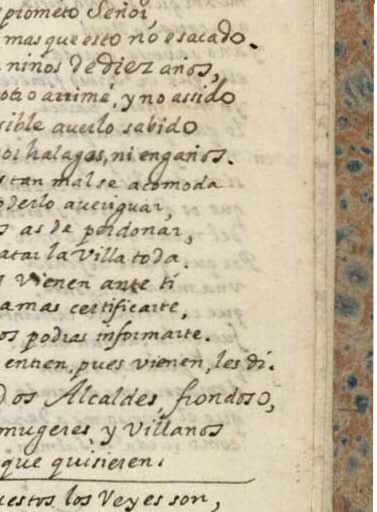 prometo Señor,
mas que esto no e sacado.
niños de diez años,
potro arrimé, y no a sido
sible averlo sabido
por halagos, ni engaños.
tan mal se acomoda
poderlo averiguar,
as de perdonar,
matar la Villa toda.
vienen ante ti
certificarte,
podras informarte.
entren, pues vienen, les dí.
Dos Alcaldes, frondoso,
mugeres y Villanos
que quisieren.
los Reyes son,